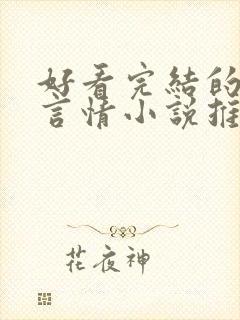 好看完結的
言情小說推
花夜神